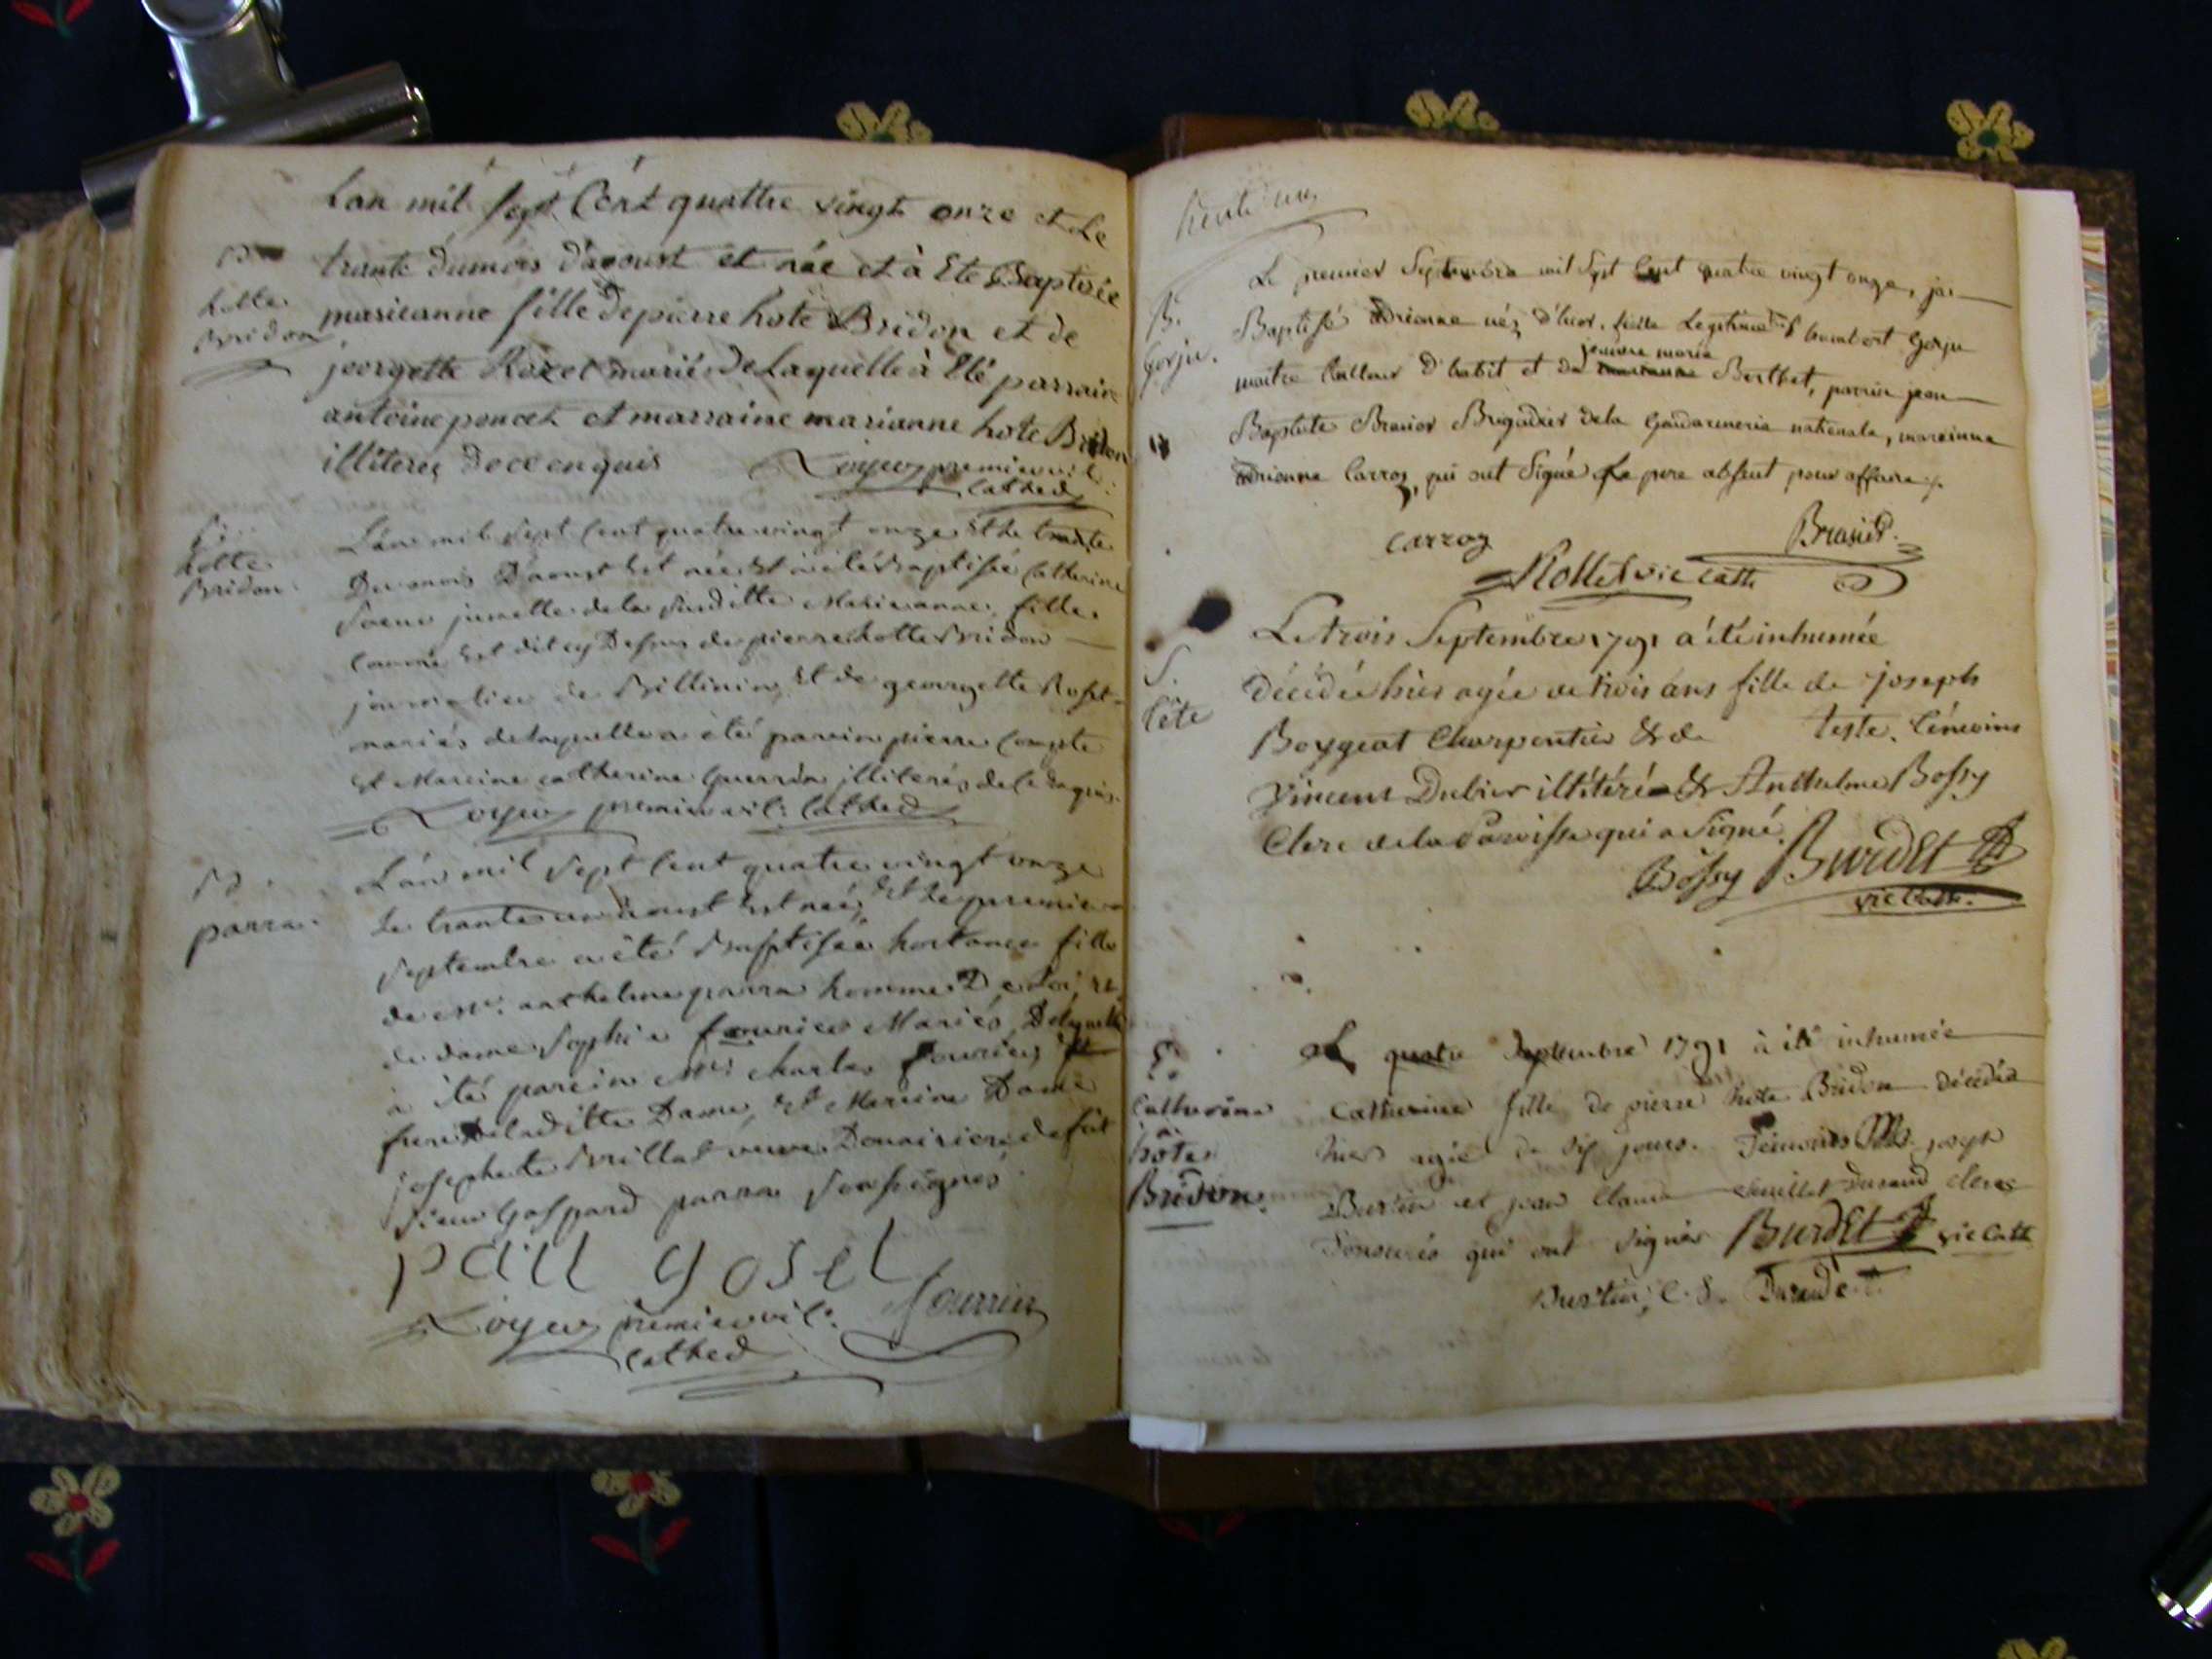 Lan mil sept Cent quattre vingt onze et Le
B
trante dumois d'aoust et née et à Ete Baptisée
hotte
marieanne fille de pierre hote Bridon et de
Bridon
jeorgette Rozet mariés de Laquelle à Eté parrain
antoine poncet et marraine marianne hote Bridon
illiteres de ce enquis Loyeux premier vic:
cathed
B
hotte
Bridon
L'an mil sept cent quatre vingt onze et le trante
Du mois D'aoust est née et a été Baptisée catherine
soeur jumelle de la susditte Marieanne, fille
comme est dit cy Dessus de pierre hotte Bridon
journalier de et de georgette Roset
mariés de laquelle a été parrin pierre compte
et Mareine catherine Guerrin illiterés de ce enquis
Loyeux premier vic: cathed
B
parra
L'an mil sept cent quatre vingt onze
le trante un aoust est née et le premier
septembre a été Baptisée hortance fille
de Mr. anthelme parra homme De Loi, et
de dame sophie fourrier Mariés, Delaquelle
a été parein Mr: charles fourrier,
frere de laditte Dame, et Mareine Dame
josephete Brillat veuve Douairiere de fut
sieur Gaspard parra soussignés
fourrier
Loyeux premier vic:
cathed
trente un,
Le premier Septembre mil Sept Cent quatre vingt onze, jai
B.
Gorju.
Baptisé adrienne née d'hier, fille Legitime d'humbert Gorju
jeanne marie
maitre tailleur d'habit et de Berthet, parrin jean
Baptiste Brasier Brigadier de la Gendarmerie nationale, marainne
adrienne Carroz, qui ont Signé Le pere absent pour affaire
carroz Brasier
Rollet vic cath
S.
tête
Le trois Septembre 1791 a été inhumée
décédée hier agée de trois ans fille de joseph
Boygeat Charpentier & de teste. témoins
Vincent Dubier illitéré & Anthelme Bossy
Clerc de la Paroisse qui a Signé.
Bossy Burdet
vic Cath.
S.
Catherine
hôte
Bridon.
Le quatre Septembre 1791 à été inhumée
Catherine fille de pierre hôte Bridon décédée
hier agée de six jours. Témoins Mrs. joseph
Burtin et jean Claude durand clercs
Tonsurés qui ont signés Burdet vic Cath
Burtin, C. S. Durand c.t.